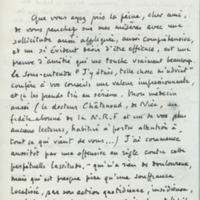 Que vous ayez pris la peine, cher ami,
de vous pencher sur mes misères avec une
sollicitude aussi appliquée, aussi compétente,
et un désir évident d'être efficace, est une
preuve d'amitié qui me touche vivement
le sous-entendu "J'y étais, telle chose m'advint"
confère à vos conseils une valeur
et je les prends très au sérieux. Mon médecin
aussi (le docteur de Nice, un
fidèle abonné de la N.R.F. et un de vos plus
anciens lecteurs, habitué à porter attention à
tout ce qui vient de vous...) J'ai commencé
aussitôt par une offensive en règle contre cette
perpétuelle lassitude, qui n'a rien de douloureux,
mais qui est presque pire qu'une souffrance
localisée, par son action quotidienne, insidieuse,